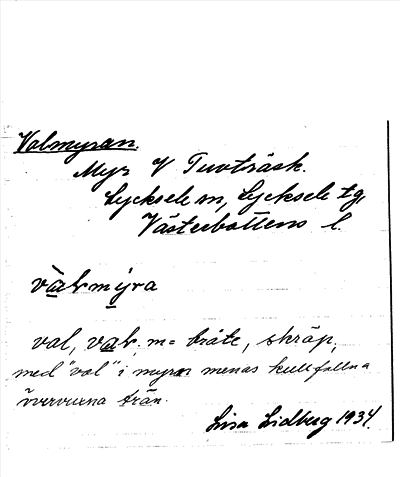 Valmyran.
Myr V Tuvträsk.
Lycksele sn, Lycksele tg,
Västerbottens l.
val, m = bråte, skräp,
med "val" i myran menas kullfallna
övervuxna trän.
Lisa Lidberg 1934.